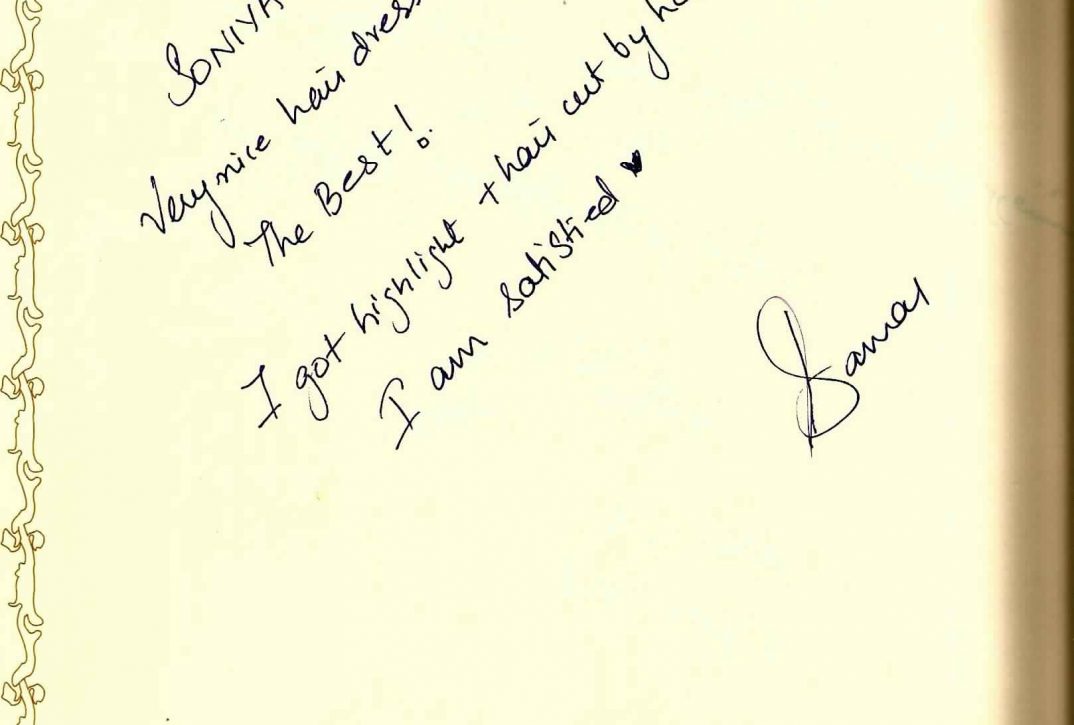 SONIYA
Very nice hair dress
The Best!
I got highlight + hair cut by he
I am satisfied ♥
Samar